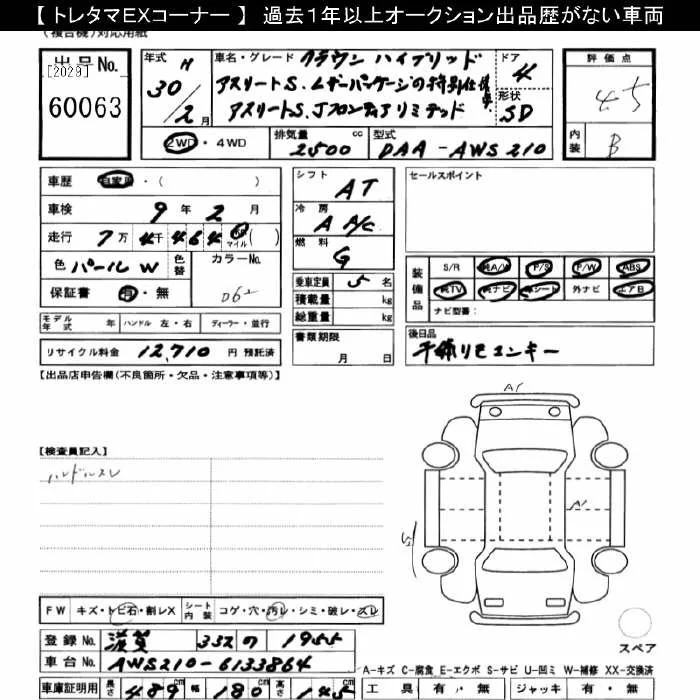 【トレタマEXコーナー】 過去１年以上オークション出品歴がない車両
(複合機)対応用紙
出品No.
[2029]
60063
年式 H 30/2月
車名・グレード クラウン ハイブリッド
アスリートS、レザーパッケージの特別仕様車
アスリートS、Jフロンティアリミテッド
ドア 4
形状 SD
評価点 4.5
内装 B
2WD・4WD
排気量 2500 cc
型式 DAA-AWS210
車歴 自家用・( )
車検 9年2月
走行 7万4千464 km マイル ( )
色 パールW 色替 カラーNo. 062
保証書 有・無
シフト AT
冷房 A A/C
燃料 G
乗車定員 5名
積載量 kg
総重量 kg
セールスポイント
装備品 S/R 純A/W P/S P/W ABS
純TV 純ナビ 革シート 外ナビ エアB
ナビ型番:
モデル年式 年 ハンドル 左・右 ディーラー・並行
書類期限 月 日
後日品
リサイクル料金 12,710 円 預託済
【出品店申告欄(不良箇所・欠品・注意事項等)】
A1
【検査員記入】
ハンドルスレ
A1
FW キズ・トビ石・割レX シート内装 コゲ・穴・汚レ・シミ・破レ・スレ
登録No. 滋賀 332 の 1955
車台No. AWS210-6133864
スペア
A-キズ C-腐食 E-エクボ S-サビ U-凹ミ W-補修 XX-交換済
車庫証明用 長さ 489cm 幅 180cm 高さ 145cm
工具 有・無 ジャッキ 有・無